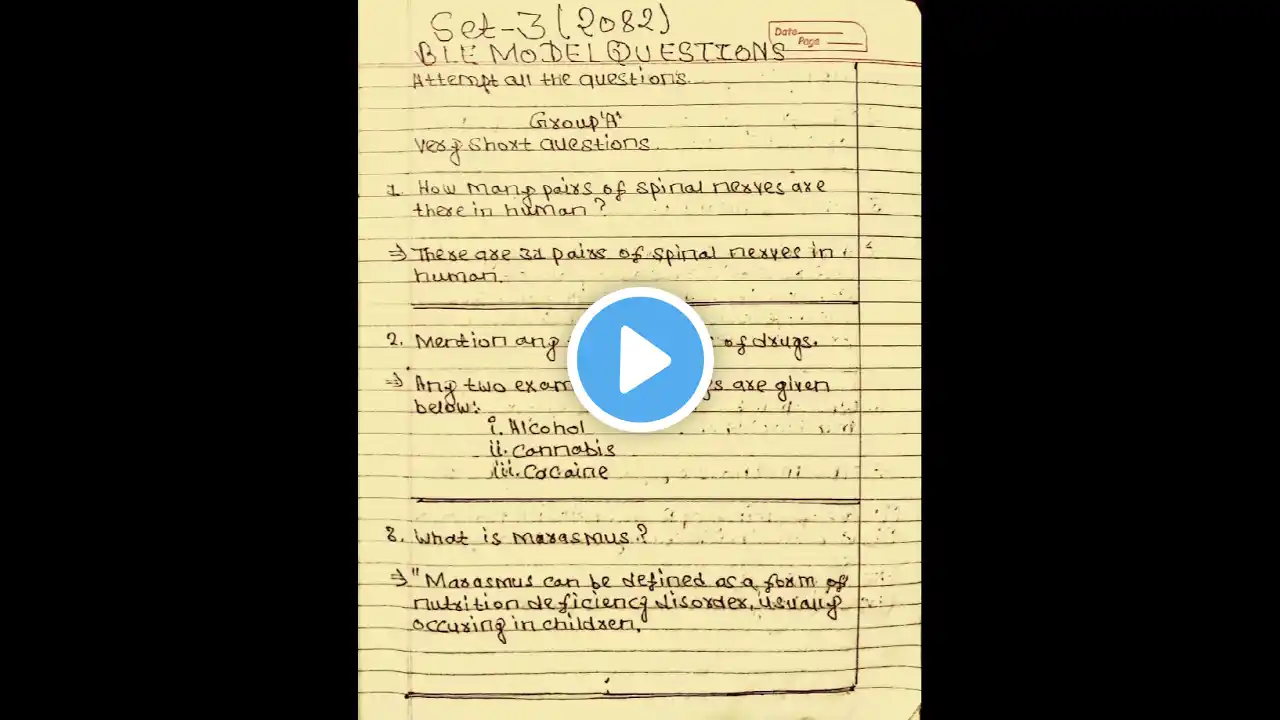 Set-3 (2082)
Date
Page
BLE MODEL QUESTIONS
Attempt all the questions.
Group 'A'
Very short questions
1. How many pairs of spinal nerves are
there in human?
=> There are 31 pairs of spinal nerves in
human.
2. Mention any of drugs.
=> Any two are given
below:
i. Alcohol
ii. Cannabis
iii. Cocaine
3. What is marasmus?
=> "Marasmus can be defined as a form of
nutrition deficiency disorder, usually
occuring in children.